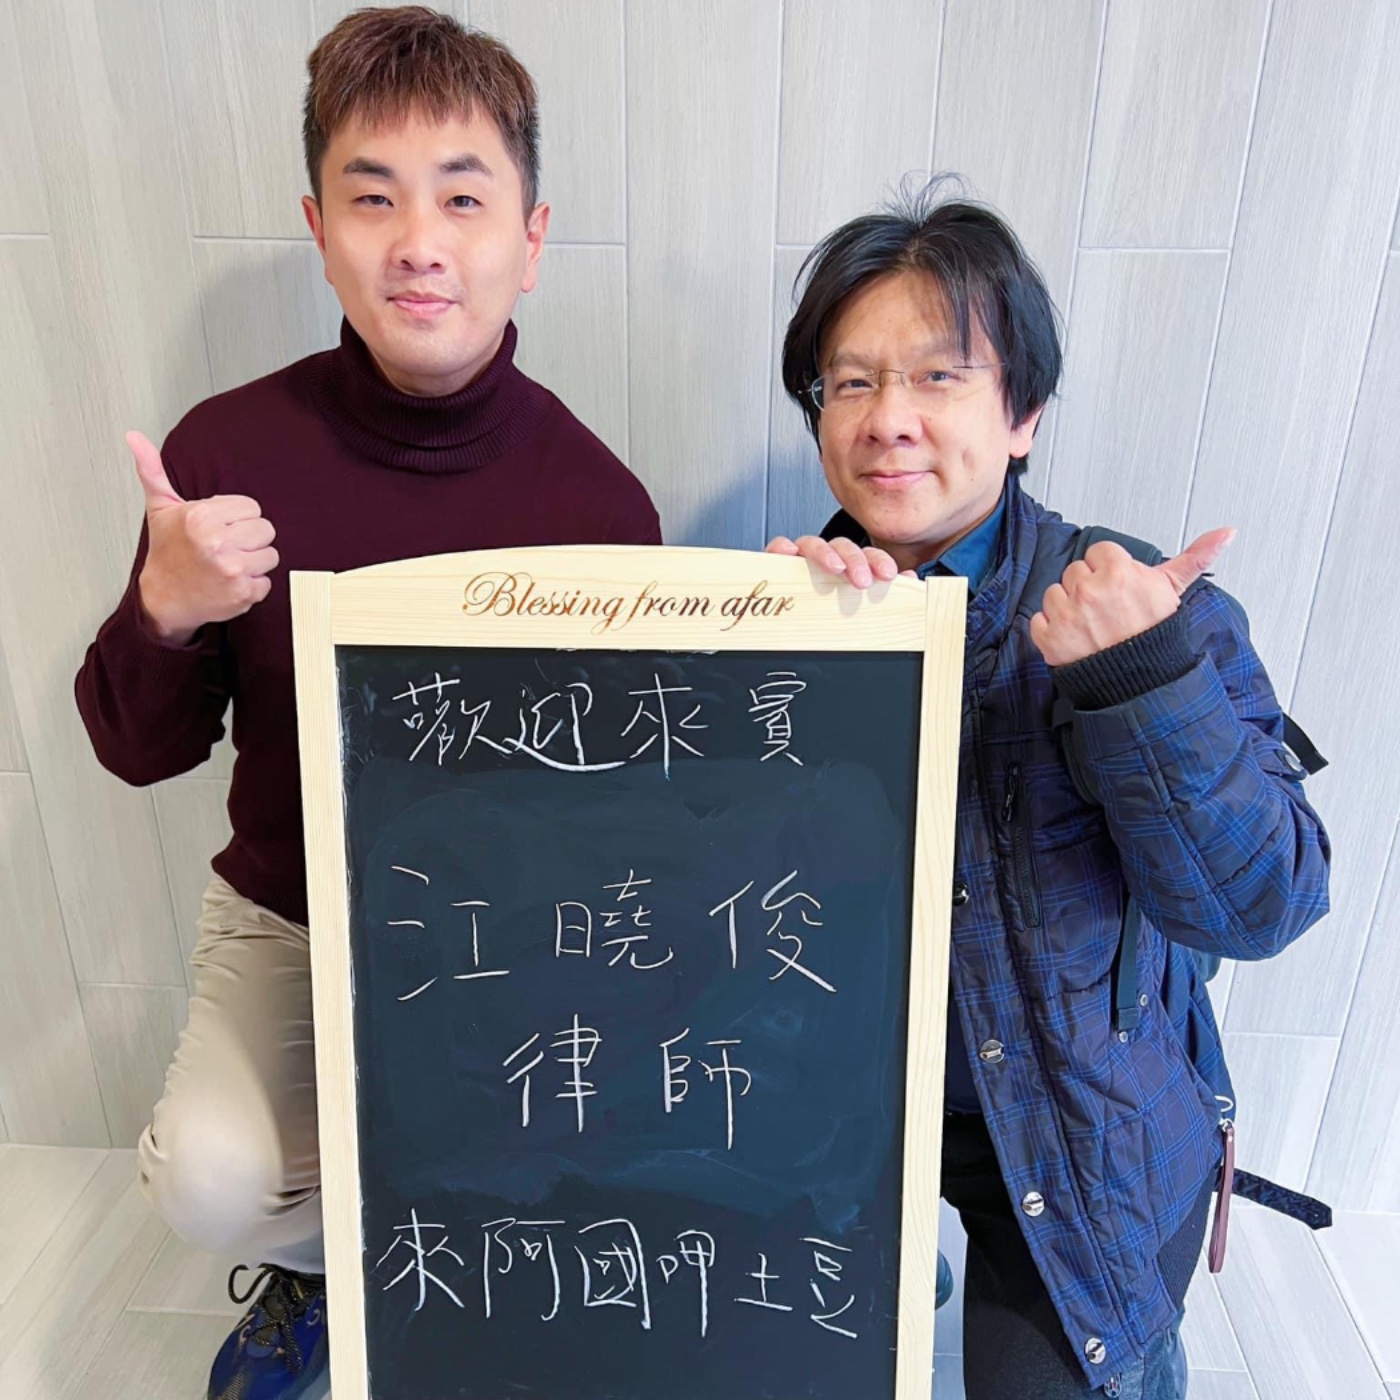 Blessing from afar
歡迎來賓
江曉俊
律師
來阿國呷土豆